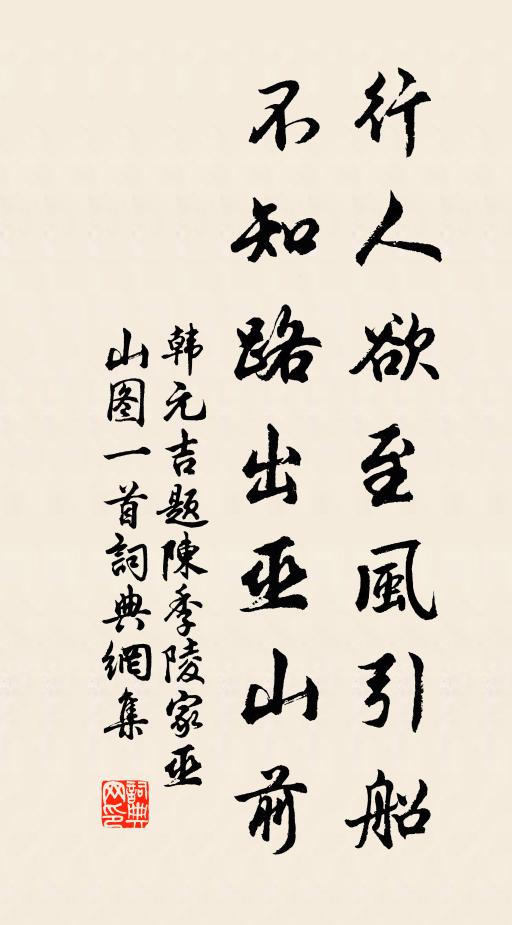 行人欲至風引船
不知路出巫山前
韩元吉题陳季陵家巫
山图一首詞典網集
詞典
网印